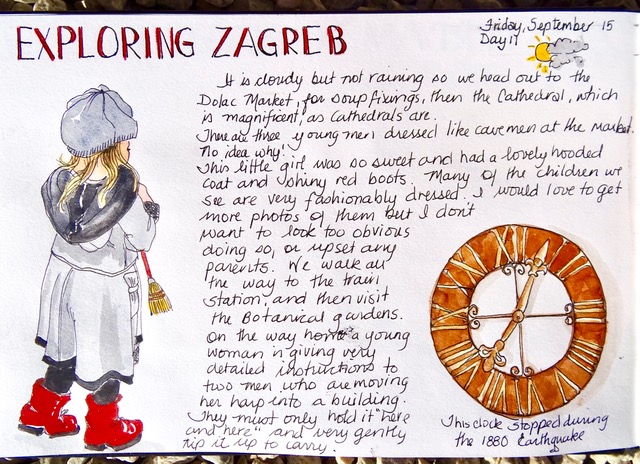 EXPLORING ZAGREB
Friday, September 15
Day 17
It is cloudy but not raining so we head out to the
Dolac Market, for soup fixings, then the Cathedral, which
is magnificent, as Cathedrals are.
There are three young men dressed like cavemen at the market.
No idea why!
This little girl was so sweet and had a lovely hooded
coat and shiny red boots. Many of the children we
see are very fashionably dressed. I would love to get
more photos of them but I don't
want to look too obvious
doing so, or upset any
parents. We walk all
the way to the train
station, and then visit
the Botanical gardens.
On the way home a young
woman is giving very
detailed instructions to
two men who are moving
her harp into a building.
They must only hold it "here
and here" and very gently
tip it up to carry.
This clock stopped during
the 1880 Earthquake